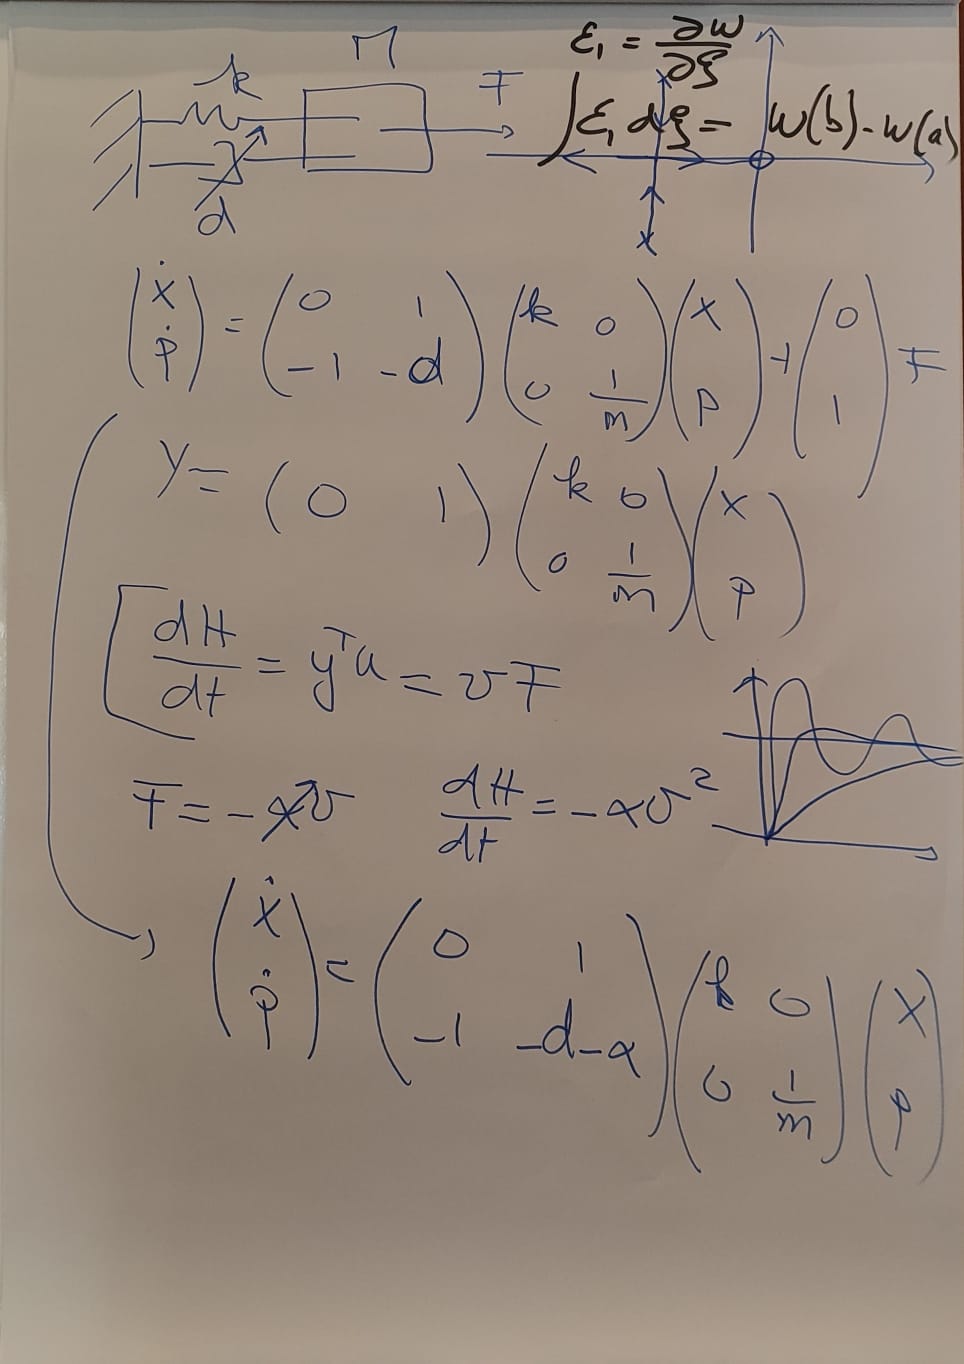 k M F d
ε₁ = ∂w/∂ξ
∫ε₁ dξ = w(b) - w(a)
(ẋ ṗ) = (0 1 -1 -d) (k 0 0 1/m) (x p) + (0 1) F
y = (0 1) (k 0 0 1/m) (x p)
dH/dt = yᵀu = vF
F = -αv dH/dt = -αv²
(ẋ ṗ) = (0 1 -1 -d-α) (k 0 0 1/m) (x p)